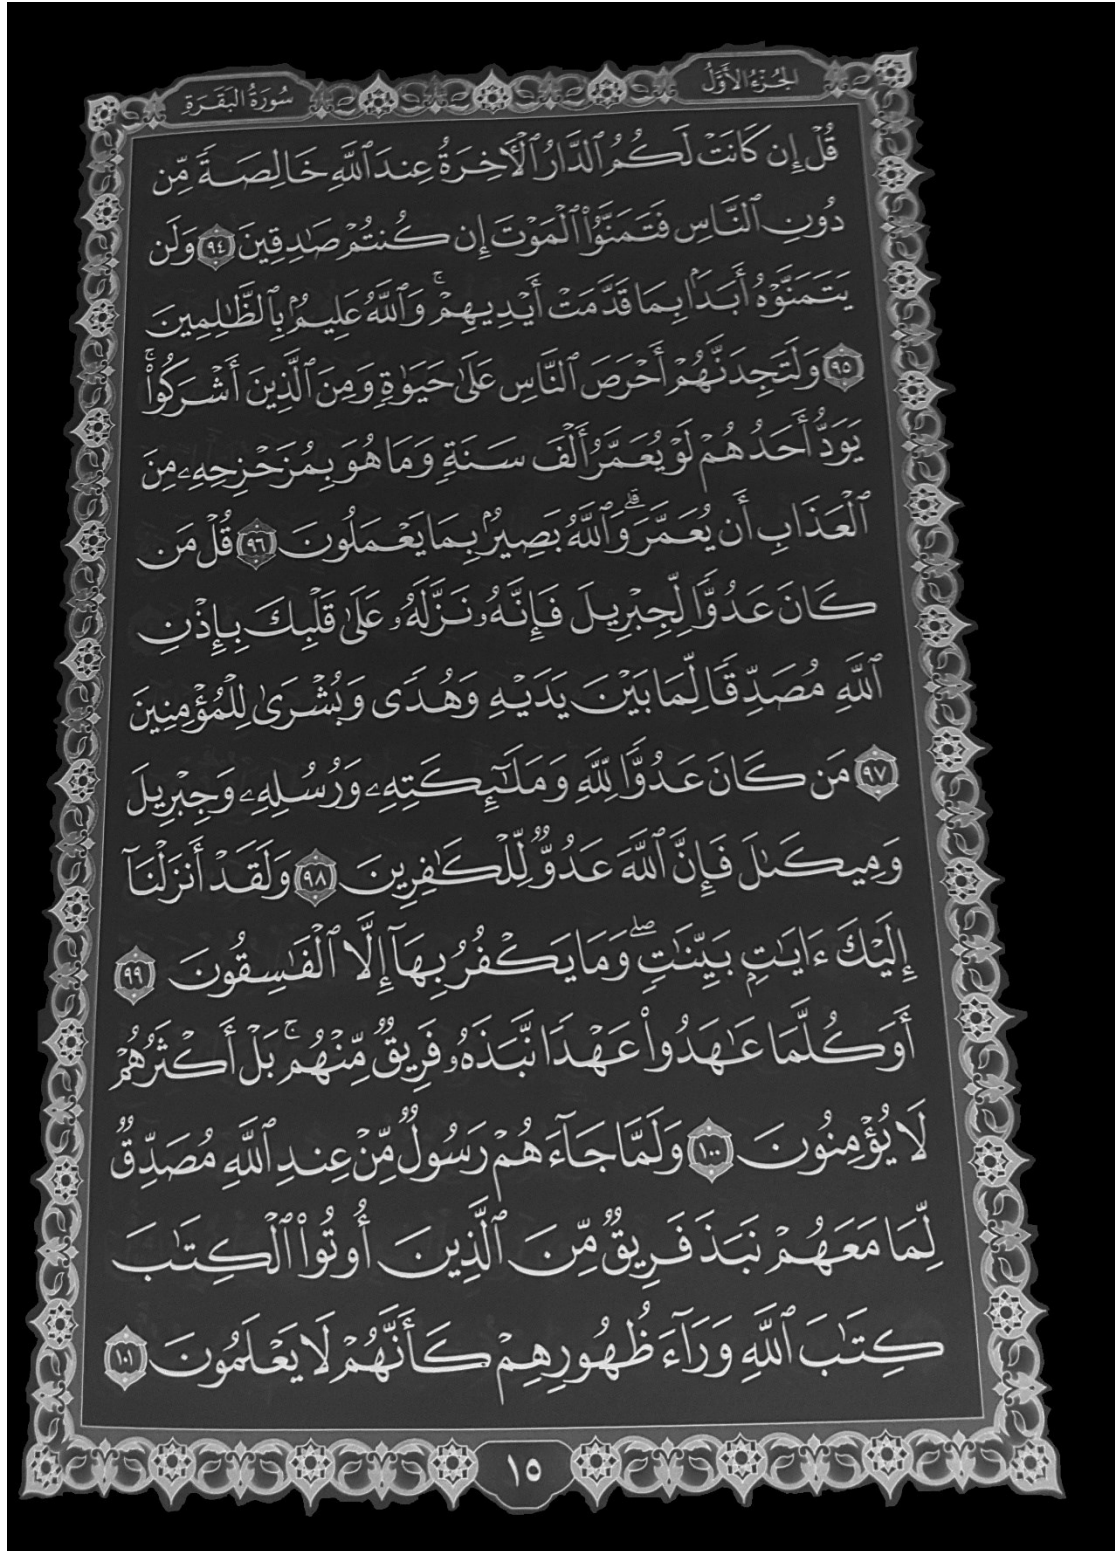 الجُزْءُ الأَوَّلُ
سُورَةُ البَقَرَةِ
قُلْ إِن كَانَتْ لَكُمُ ٱلدَّارُ ٱلْأَخِرَةُ عِندَ ٱللَّهِ خَالِصَةً مِّن
دُونِ ٱلنَّاسِ فَتَمَنَّوُا۟ ٱلْمَوْتَ إِن كُنتُمْ صَٰدِقِينَ ٩٤ وَلَن
يَتَمَنَّوْهُ أَبَدَۢا بِمَا قَدَّمَتْ أَيْدِيهِمْ ۚ وَٱللَّهُ عَلِيمُۢ بِٱلظَّٰلِمِينَ
٩٥ وَلَتَجِدَنَّهُمْ أَحْرَصَ ٱلنَّاسِ عَلَىٰ حَيَوٰةٍ وَمِنَ ٱلَّذِينَ أَشْرَكُوا۟ ۚ
يَوَدُّ أَحَدُهُمْ لَوْ يُعَمَّرُ أَلْفَ سَنَةٍ وَمَا هُوَ بِمُزَحْزِحِهِۦ مِنَ
ٱلْعَذَابِ أَن يُعَمَّرَ ۗ وَٱللَّهُ بَصِيرُۢ بِمَا يَعْمَلُونَ ٩٦ قُلْ مَن
كَانَ عَدُوًّا لِّجِبْرِيلَ فَإِنَّهُۥ نَزَّلَهُۥ عَلَىٰ قَلْبِكَ بِإِذْنِ
ٱللَّهِ مُصَدِّقًا لِّمَا بَيْنَ يَدَيْهِ وَهُدًى وَبُشْرَىٰ لِلْمُؤْمِنِينَ
٩٧ مَن كَانَ عَدُوًّا لِّلَّهِ وَمَلَٰٓئِكَتِهِۦ وَرُسُلِهِۦ وَجِبْرِيلَ
وَمِيكَىٰلَ فَإِنَّ ٱللَّهَ عَدُوٌّ لِّلْكَٰفِرِينَ ٩٨ وَلَقَدْ أَنزَلْنَآ
إِلَيْكَ ءَايَٰتٍۭ بَيِّنَٰتٍ ۖ وَمَا يَكْفُرُ بِهَآ إِلَّا ٱلْفَٰسِقُونَ ٩٩
أَوَكُلَّمَا عَٰهَدُوا۟ عَهْدًا نَّبَذَهُۥ فَرِيقٌ مِّنْهُم ۚ بَلْ أَكْثَرُهُمْ
لَا يُؤْمِنُونَ ١٠٠ وَلَمَّا جَآءَهُمْ رَسُولٌ مِّنْ عِندِ ٱللَّهِ مُصَدِّقٌ
لِّمَا مَعَهُمْ نَبَذَ فَرِيقٌ مِّنَ ٱلَّذِينَ أُوتُوا۟ ٱلْكِتَٰبَ
كِتَٰبَ ٱللَّهِ وَرَآءَ ظُهُورِهِمْ كَأَنَّهُمْ لَا يَعْلَمُونَ ١٠١
١٥